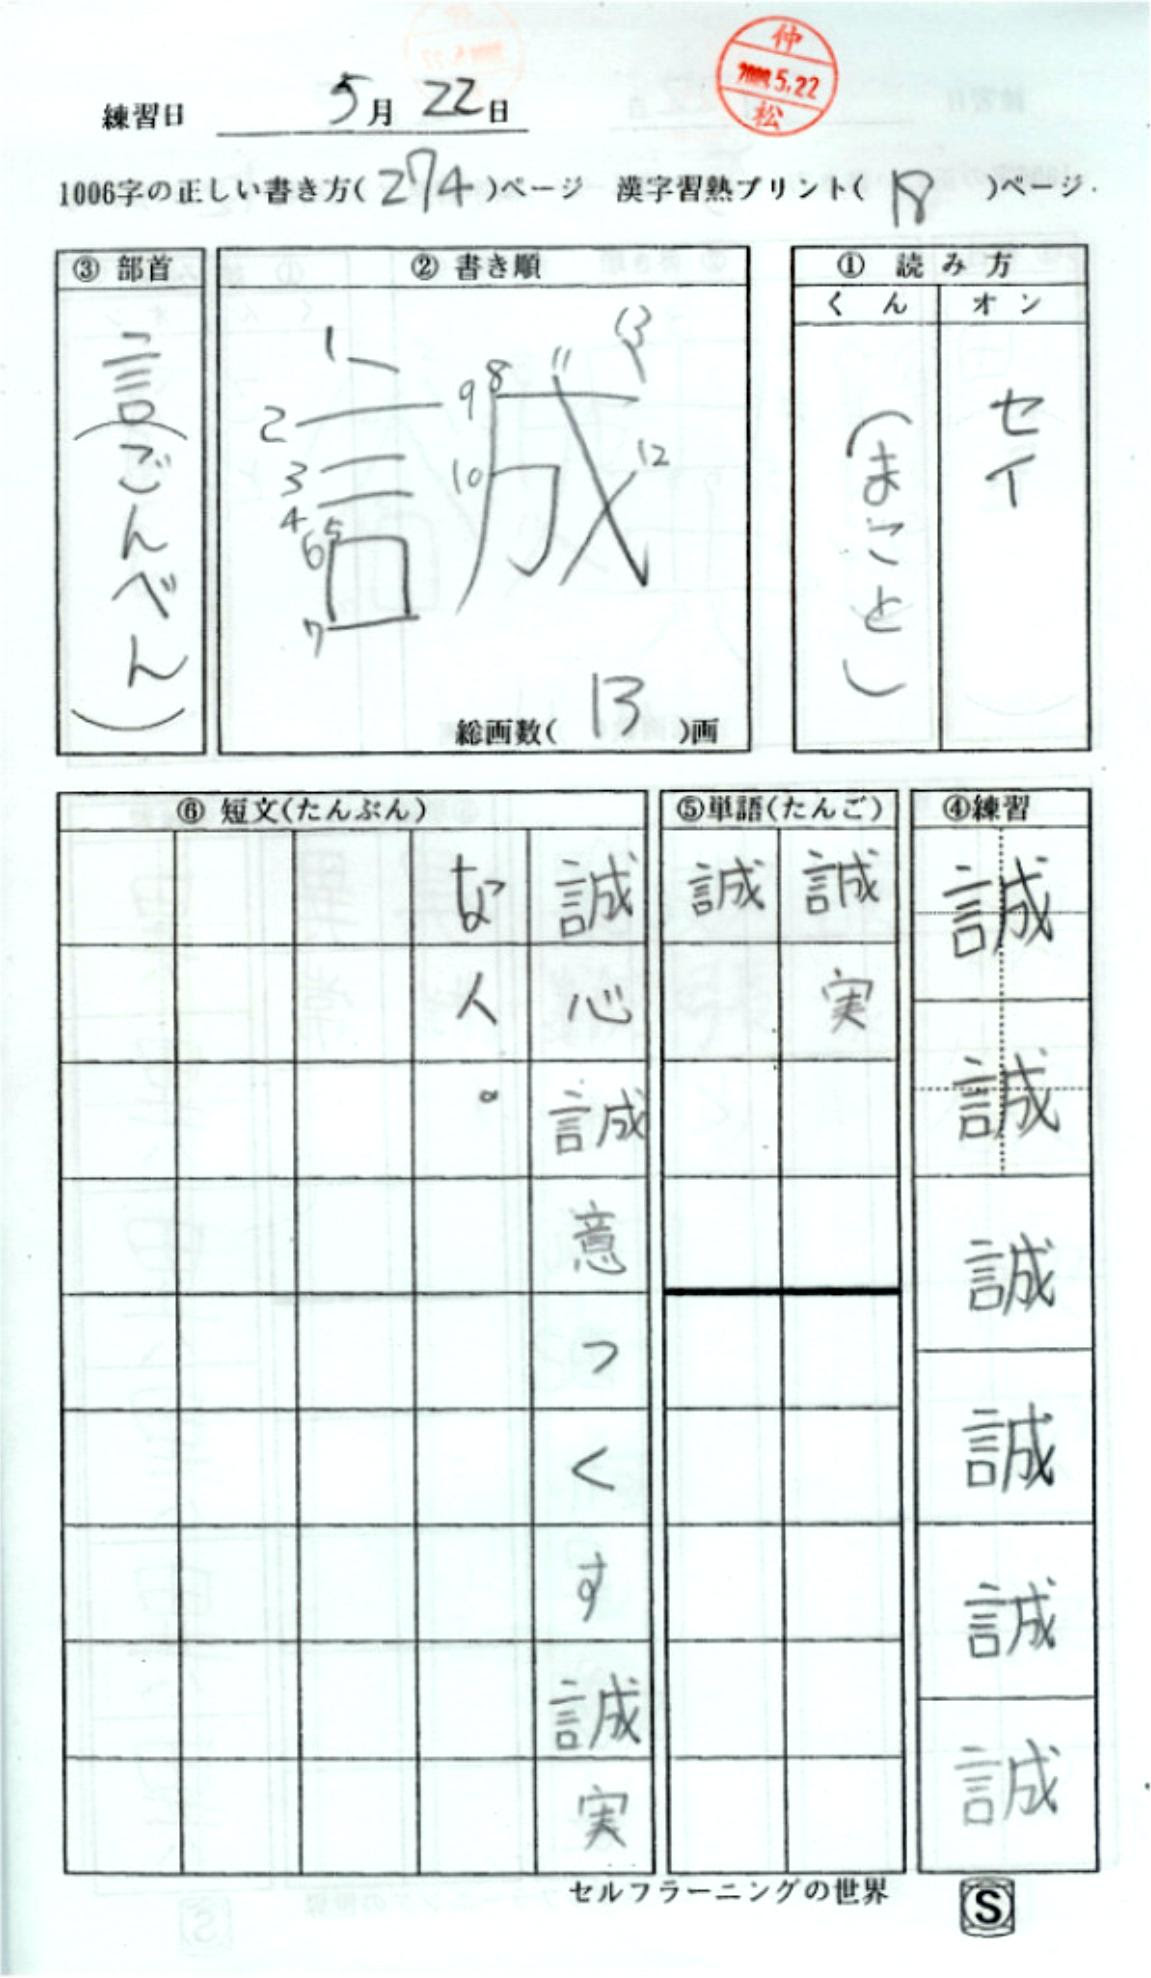 仲
5.22
松
練習日 5月22日
1006字の正しい書き方(274)ページ 漢字習熟プリント(18)ページ
① 読み方
オン
セイ
くん
(まこと)
② 書き順
誠
1
2
3
4
5
6
7
8
9
10
11
12
13
総画数(13)画
③ 部首
言(ごんべん)
④練習
誠
誠
誠
誠
誠
誠
⑤単語(たんご)
誠実
誠
⑥ 短文(たんぶん)
誠心誠意つくす誠実
な人。
セルフラーニングの世界
S